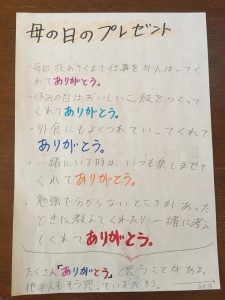 母の日のプレゼント
・毎日、夜おそくまで仕事をがんばってく
れてありがとう。
・休みの日はおいしいご飯をつくって
くれてありがとう。
・外食にもよくつれていってくれて
ありがとう。
・一緒にいる時は、いつも楽しませて
くれてありがとう。
・勉強で分からないところがあった
ときに教えてくれたり、一緒に考え
てくれてありがとう。
たくさん「ありがとう。」と思うことがある。
他の人もそう思っているだろう。